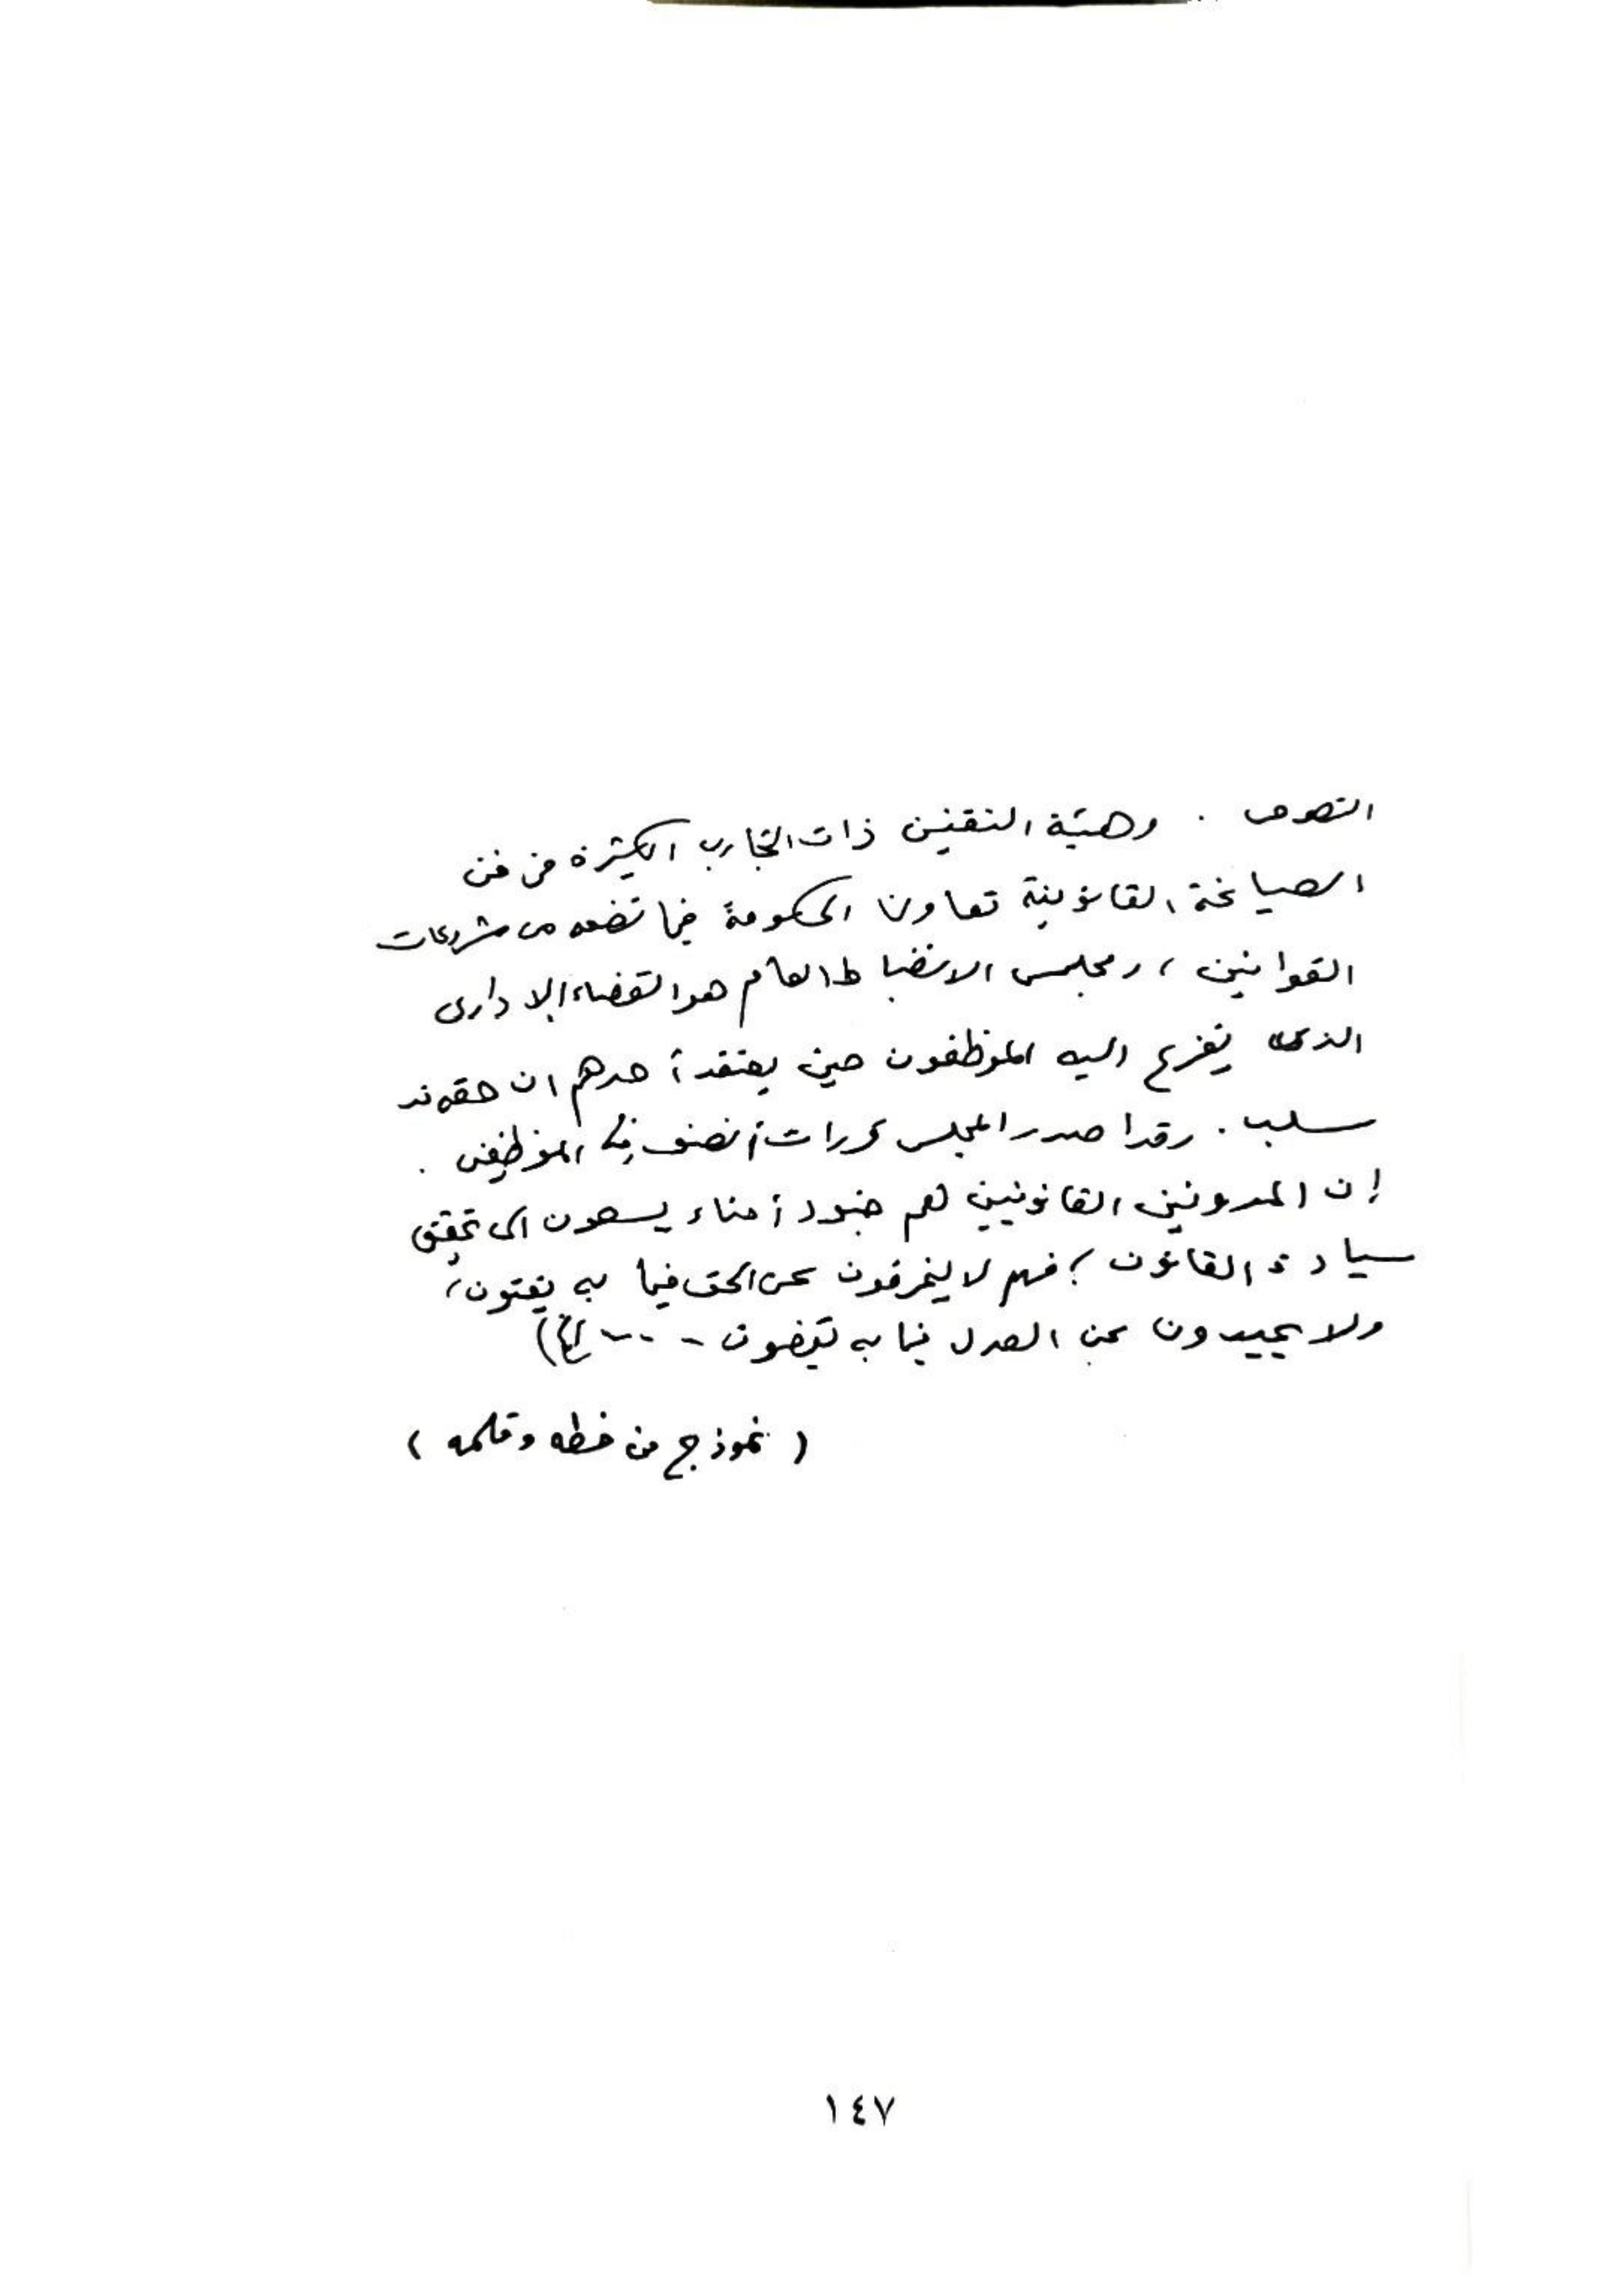 النصوص . وهيئة التقنين ذات التجارب الكثيرة في فن
الصياغة القانونية تعاون الحكومة فيما تضعه من مشروعات
القوانين ، ومجلس الانضباط العام هو القضاء الإداري
الذى يفزع اليه الموظفون حين يعتقد أحدهم ان حقه قد
سلب . وقد اصدر المجلس قرارات أنصف فيها الموظفين .
إن المدونين القانونيين لهم جنود أمناء يسعون الى تحقيق
سيادة القانون ؛ فهم لا ينحرفون عن الحق فيما به يفتون ،
ولا يحيدون عن العدل فيما به يقضون - - - - الخ )
( نموذج من خطه وقلمه )
١٤٧